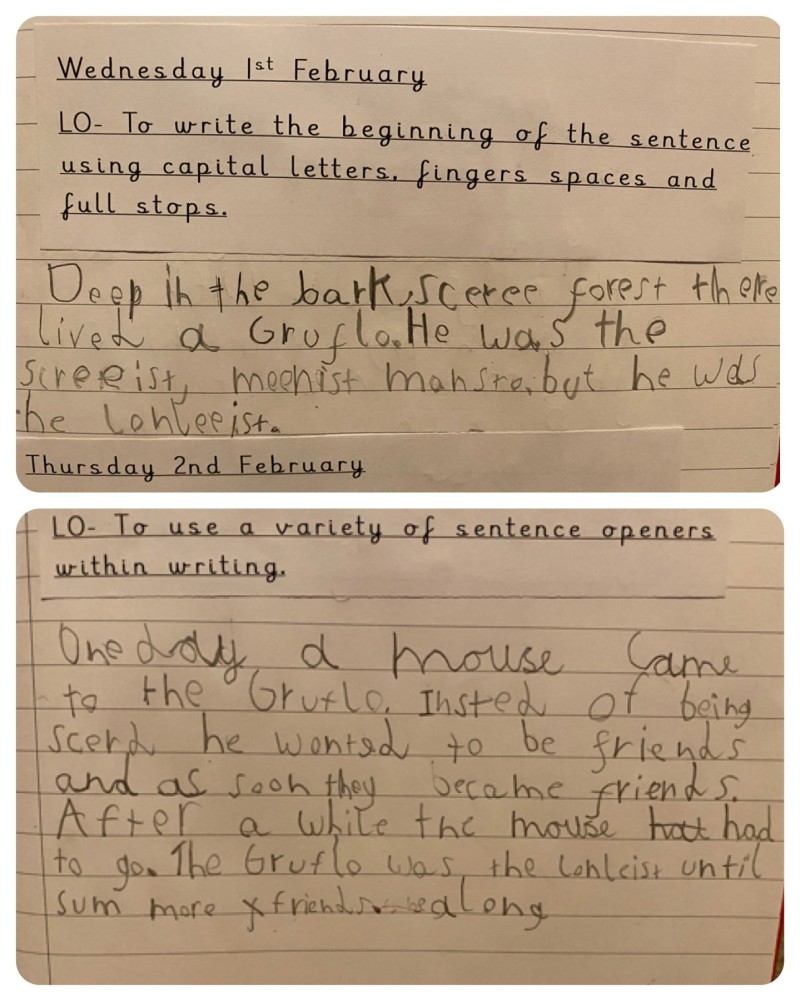 Wednesday 1st February
LO- To write the beginning of the sentence
using capital letters, fingers spaces and
full stops.
Deep in the bark, sceree forest there
lived a Gruflo. He was the
screeist, meenist monstre, but he was
he lonleeist.
Thursday 2nd February
LO- To use a variety of sentence openers
within writing.
One day a mouse came
to the Gruflo. Insted of being
scerd he wonted to be friends
and as soon they became friends.
After a while the mouse had
to go. The Gruflo was the lonleist until
sum more friends along